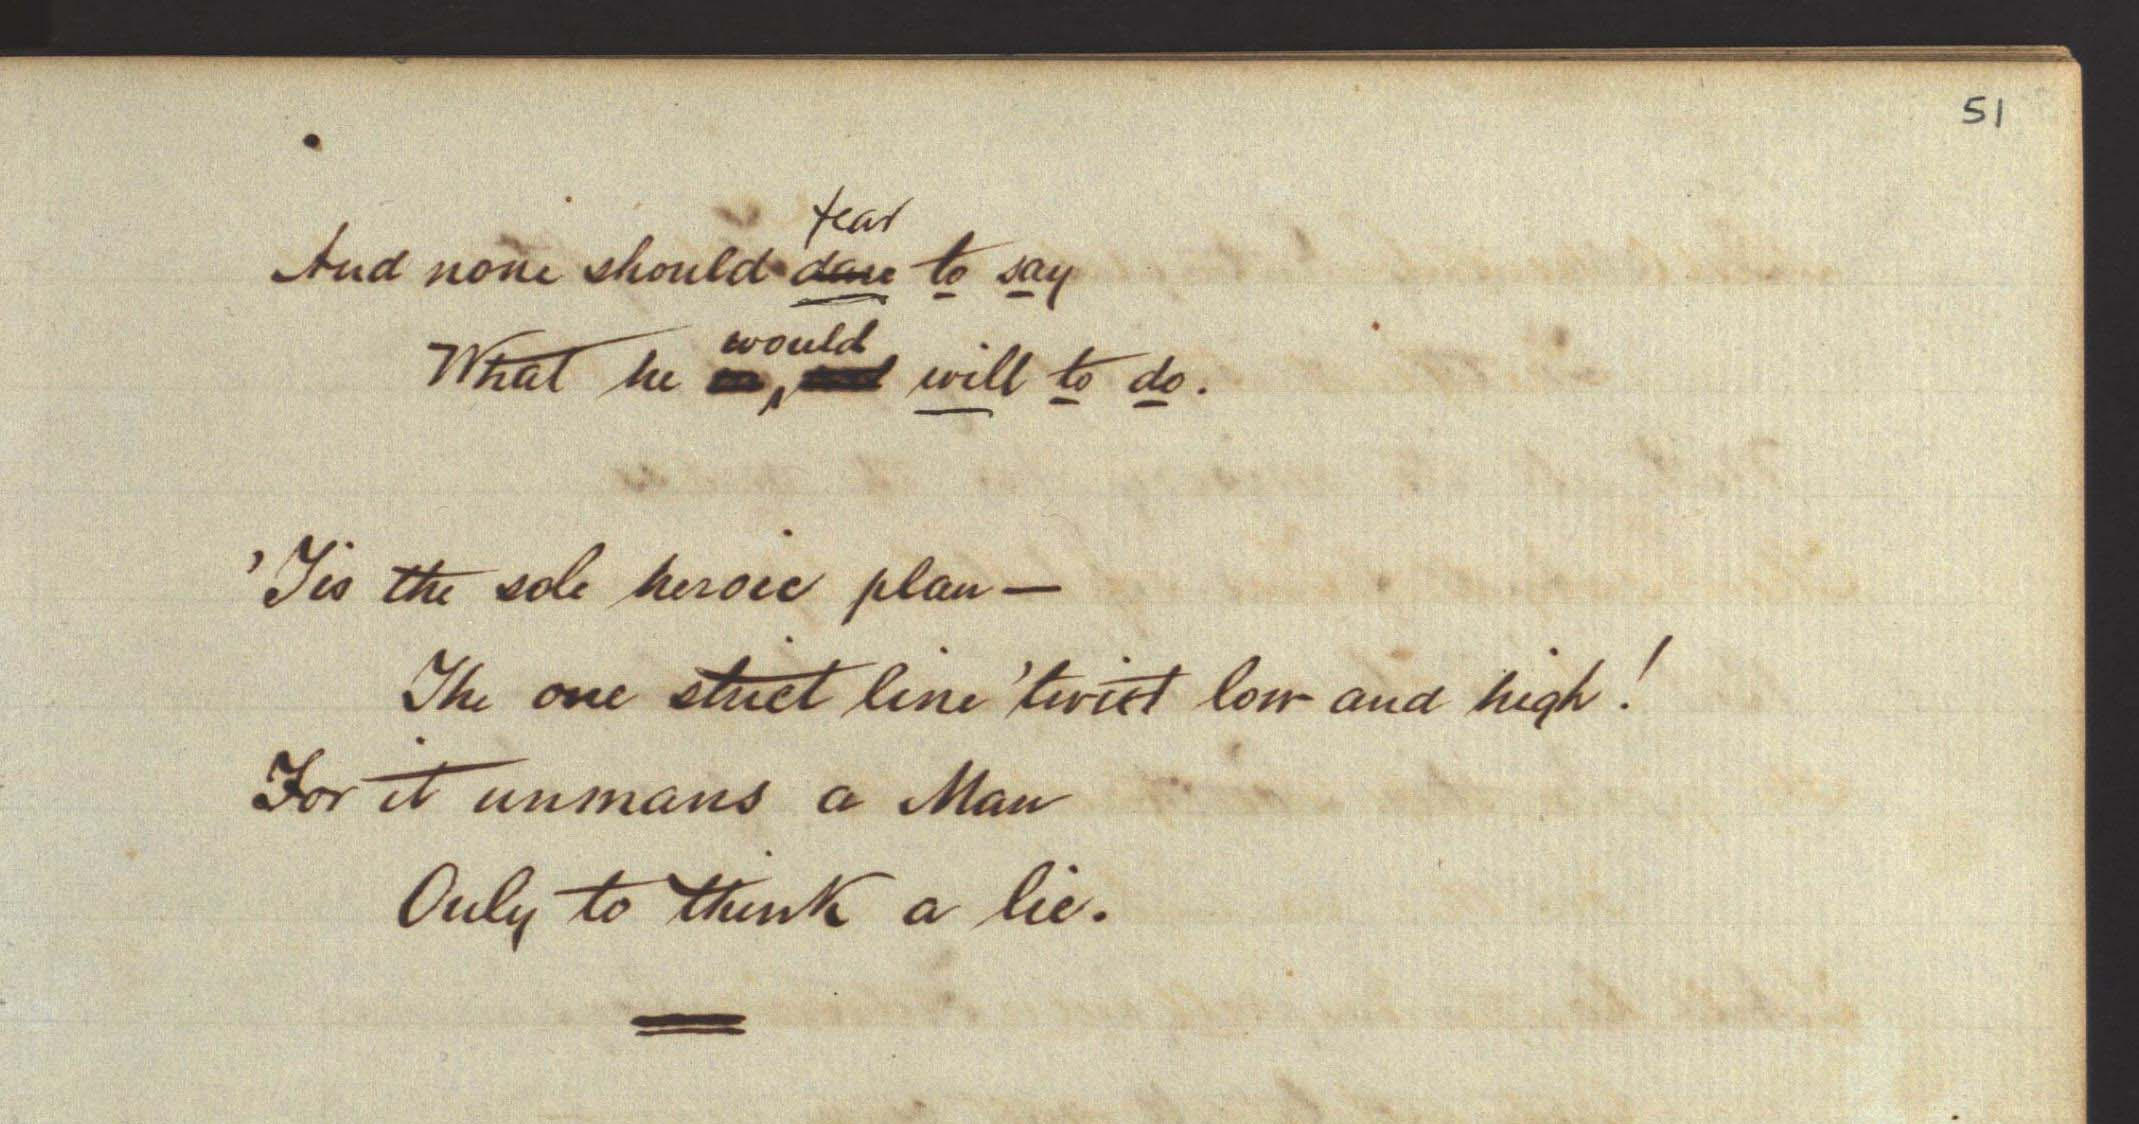 51
fear
And none should dare to say
would
What he will to do.
'Tis the sole heroic plan—
The one strict line 'twixt low and high!
For it unmans a Man
Only to think a lie.